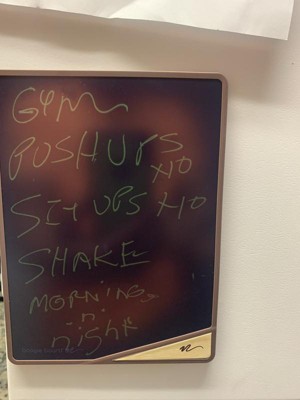 GYM
PUSHUPS
X10
SIT UPS X10
SHAKE
MORNING
n
night